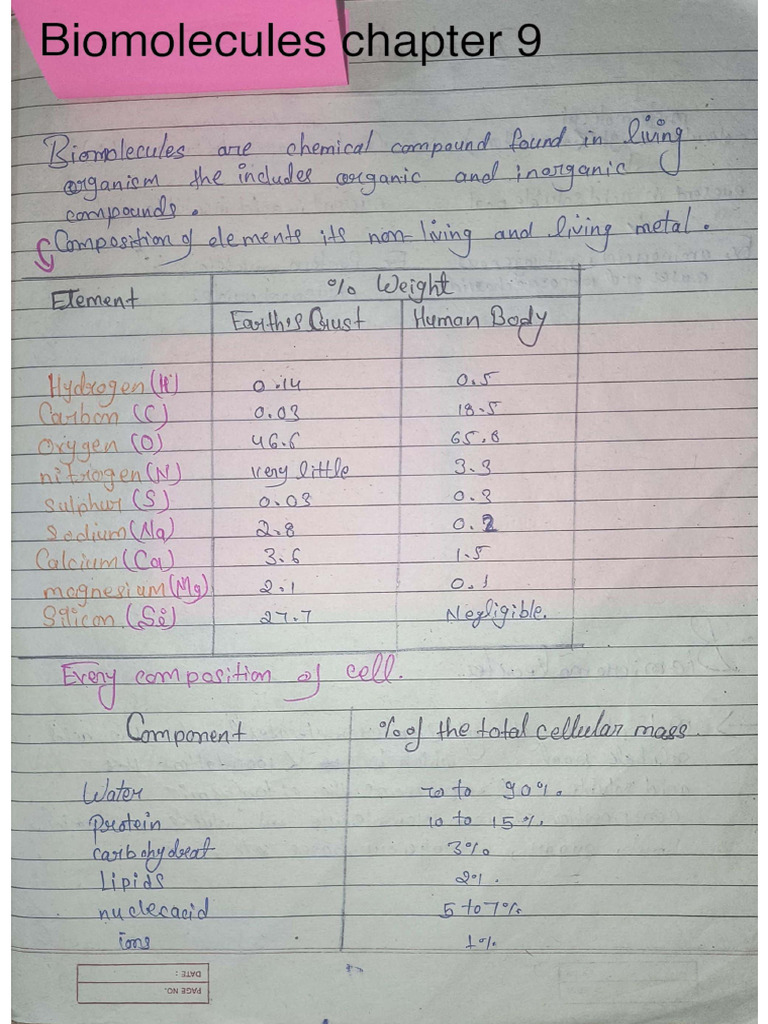 Biomolecules chapter 9
Biomolecules are chemical compound found in living
organism the includes organic and inorganic
compounds.
Composition of elements its non-living and living metal.
Element % Weight
Earth's Crust Human Body
Hydrogen (H) 0.14 0.5
Carbon (C) 0.03 18.5
Oxygen (O) 46.6 65.8
nitrogen (N) very little 3.3
sulphur (S) 0.03 0.3
Sodium (Na) 2.8 0.2
Calcium (Ca) 3.6 1.5
magnesium (Mg) 2.1 0.1
Silicon (Si) 27.7 Negligible.
Every composition of cell.
Component % of the total cellular mass.
Water 70 to 90%.
protein 10 to 15%.
carbohydreat 3%.
Lipids 2%.
nuclecacid 5 to 7%
ions 1%
PAGE NO.
DATE :